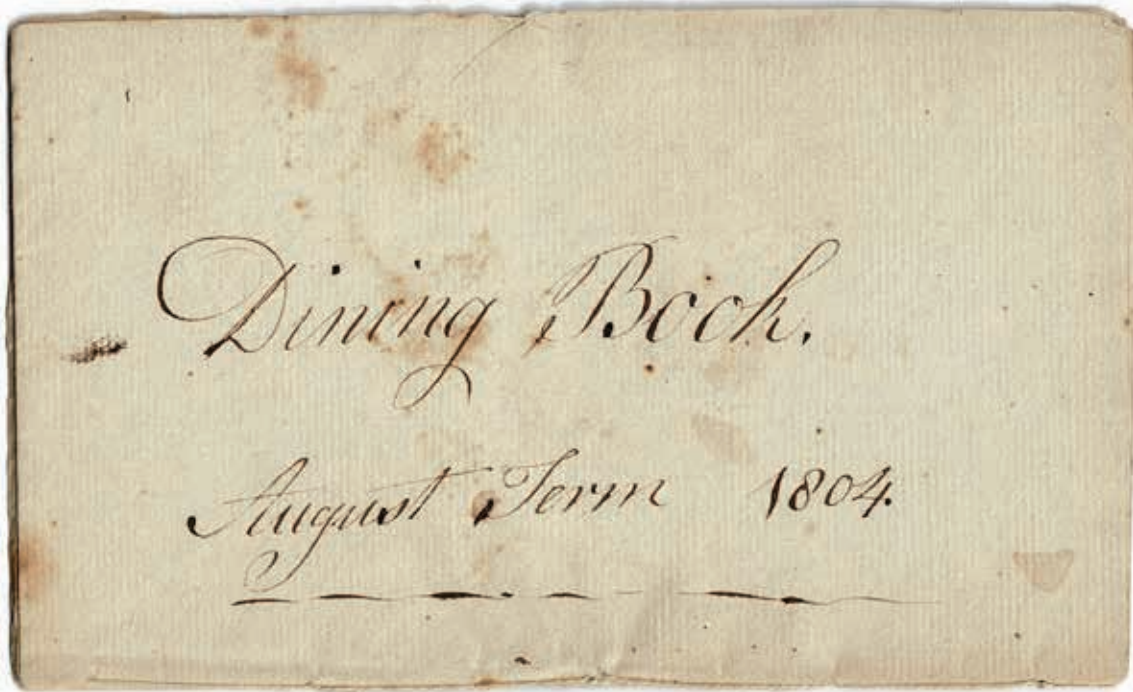 Dining Book.
August Term 1804.